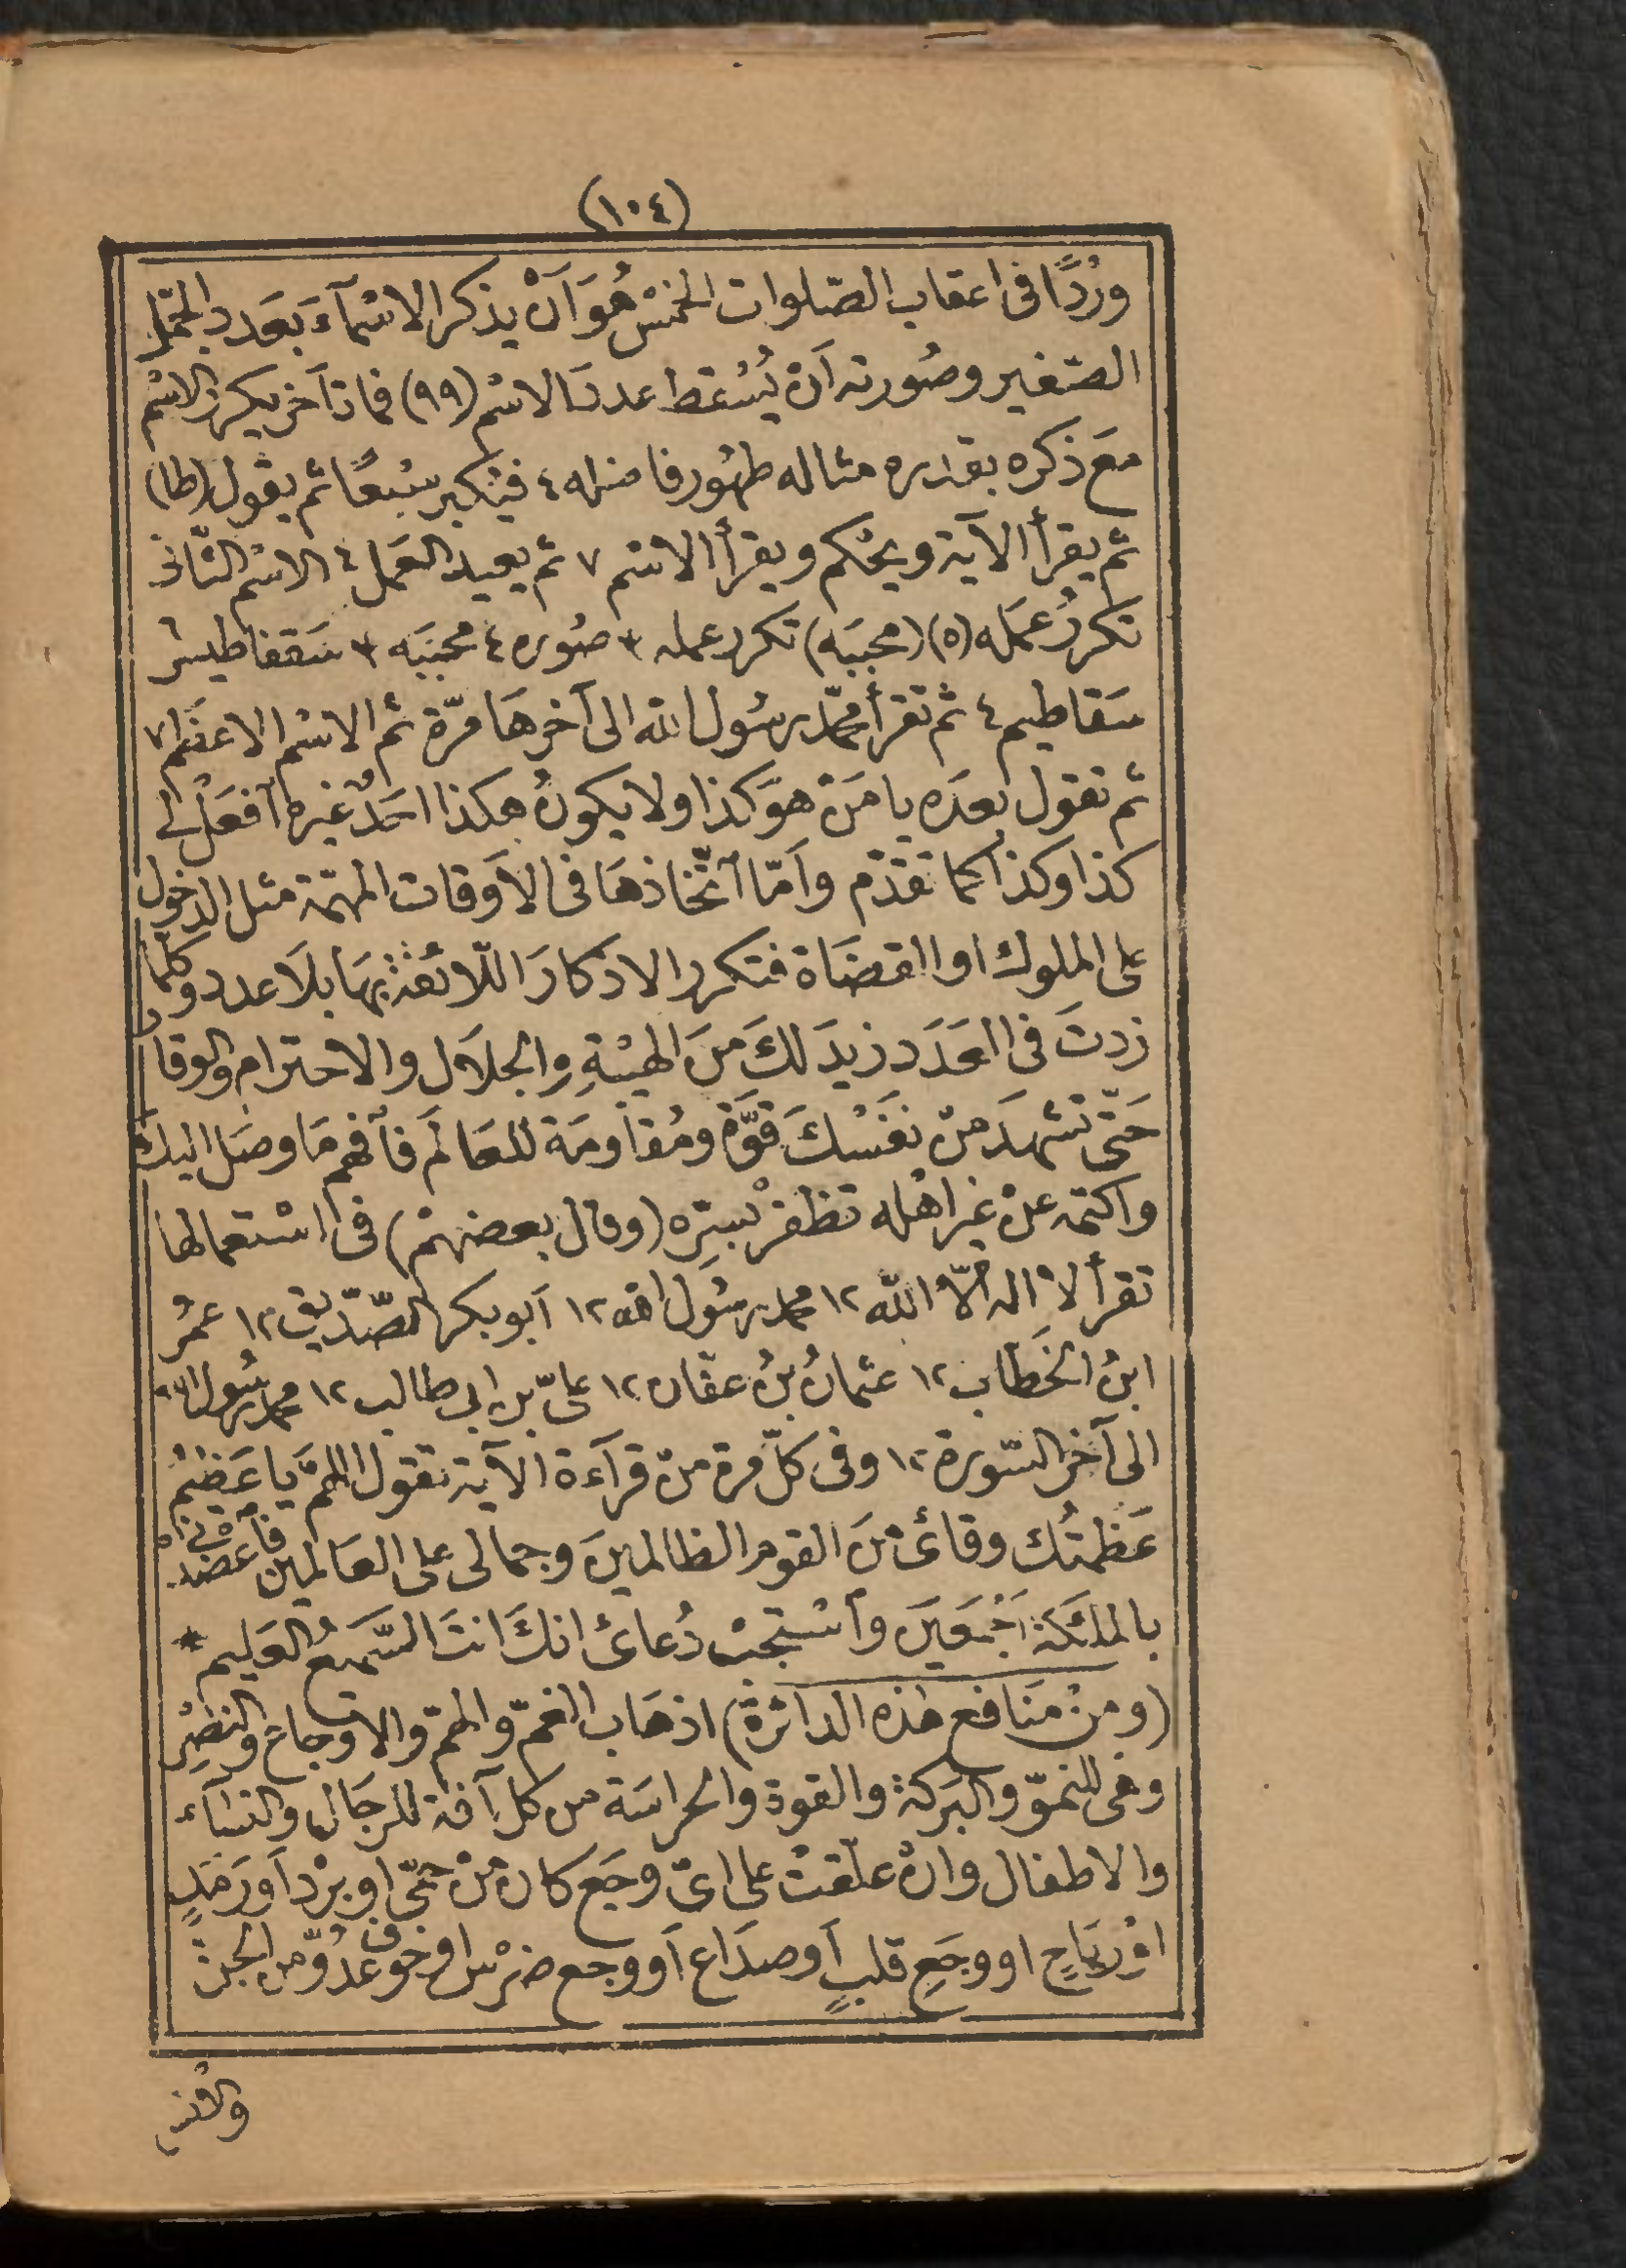 (١٠٤)
وِرْدًا فى اعقاب الصّلوات الخمْس هُوَ اَنْ يذكر الاسْمآءَ بعَدد الجمّل
الصّغير وصُورته اَنْ يُسْقط عدد الاسْم (٩٩) فماتآخر يكرّر الاسْم
مَع ذكره بقدره مثاله طهُور فاضله ٤ فيتكرر سبْعًا ثم يقول (طا)
ثم يقرأ الآية ويحْكم ويقرأ الاسْم ٧ ثم يعيد العَمل ٤ الاسْم الثّانى
تكررُ عَمَله (٥) (محببَه) تكرر عمله ٣ صُوره ٤ محببَه ٣ سَقفاطيسْ
سَقاطيم ٤ ثم تقرأ محمّد رسُول الله الى آخرهَا مرّة ثم الاسْم الاعظم ٧
ثم تقول بعدَه يا مَنْ هوَ كذا ولا يكونُ هكذا احَدٌ غيره اَفعَلْ لى
كذا وكذا كما تقدّم واَمّا اتّخاذهَا فى الاَوقات المهمّة مثل الدخول
على الملوك او القضَاة فتكرر الاذكارَ اللائقة بهَا بلاَ عدد وكلّما
زدتَ فى العَدَد زيدَ لكَ مِنَ الهيْبَةِ والجلاَل والاحترام والوقار
حَتّى تشهدَ مِنْ نفسْكَ قوَّة ومُقاومَة للعَالَم فاَفهم مَا وصَل اليك
واكتمه عنْ غير اهْله تظفرْ بسِرّه (وقال بعضهمْ) فى اسْتعمالها
تقرأ لا اله الّا الله ١٢ محمد رسُول الله ١٢ اَبوبكر الصّدّيق ١٢ عمُر
ابنُ الخَطاب ١٢ عثمانُ بنُ عفّان ١٢ علىّ بن ابى طالب ١٢ محمد رسُول الله
الى آخر السّورة ١٢ وفى كلّ مرة منْ قرآءة الآية تقول اللهمَّ يا عَظيْمُ
عَظمتُك وقائى منَ القوم الظالمينَ وجمالى على العَالمين فاَعضدْنى
بالملئكة اَجْمَعَينَ واَسْتجبْ دُعائى انكَ انتَ السّميعُ العَليم *
(ومنْ مَنَافع هٰذه الدائرة) اذهَاب الغمّ والهمّ والاَوجاع والنصْر
وهى للنموّ والبَركة والقوة والحراسَة من كل آفة للرجَال والنسآء
والاطفال وانْ علّقتْ على اىّ وجَع كان منْ حمّى او برْد اَو رَمَدٍ
اوْ ريَاحٍ او وجَعِ قلبٍ اَو صدَاع اَو وجع ضرْس او خوف عدُوّ من الجنّ
والانس